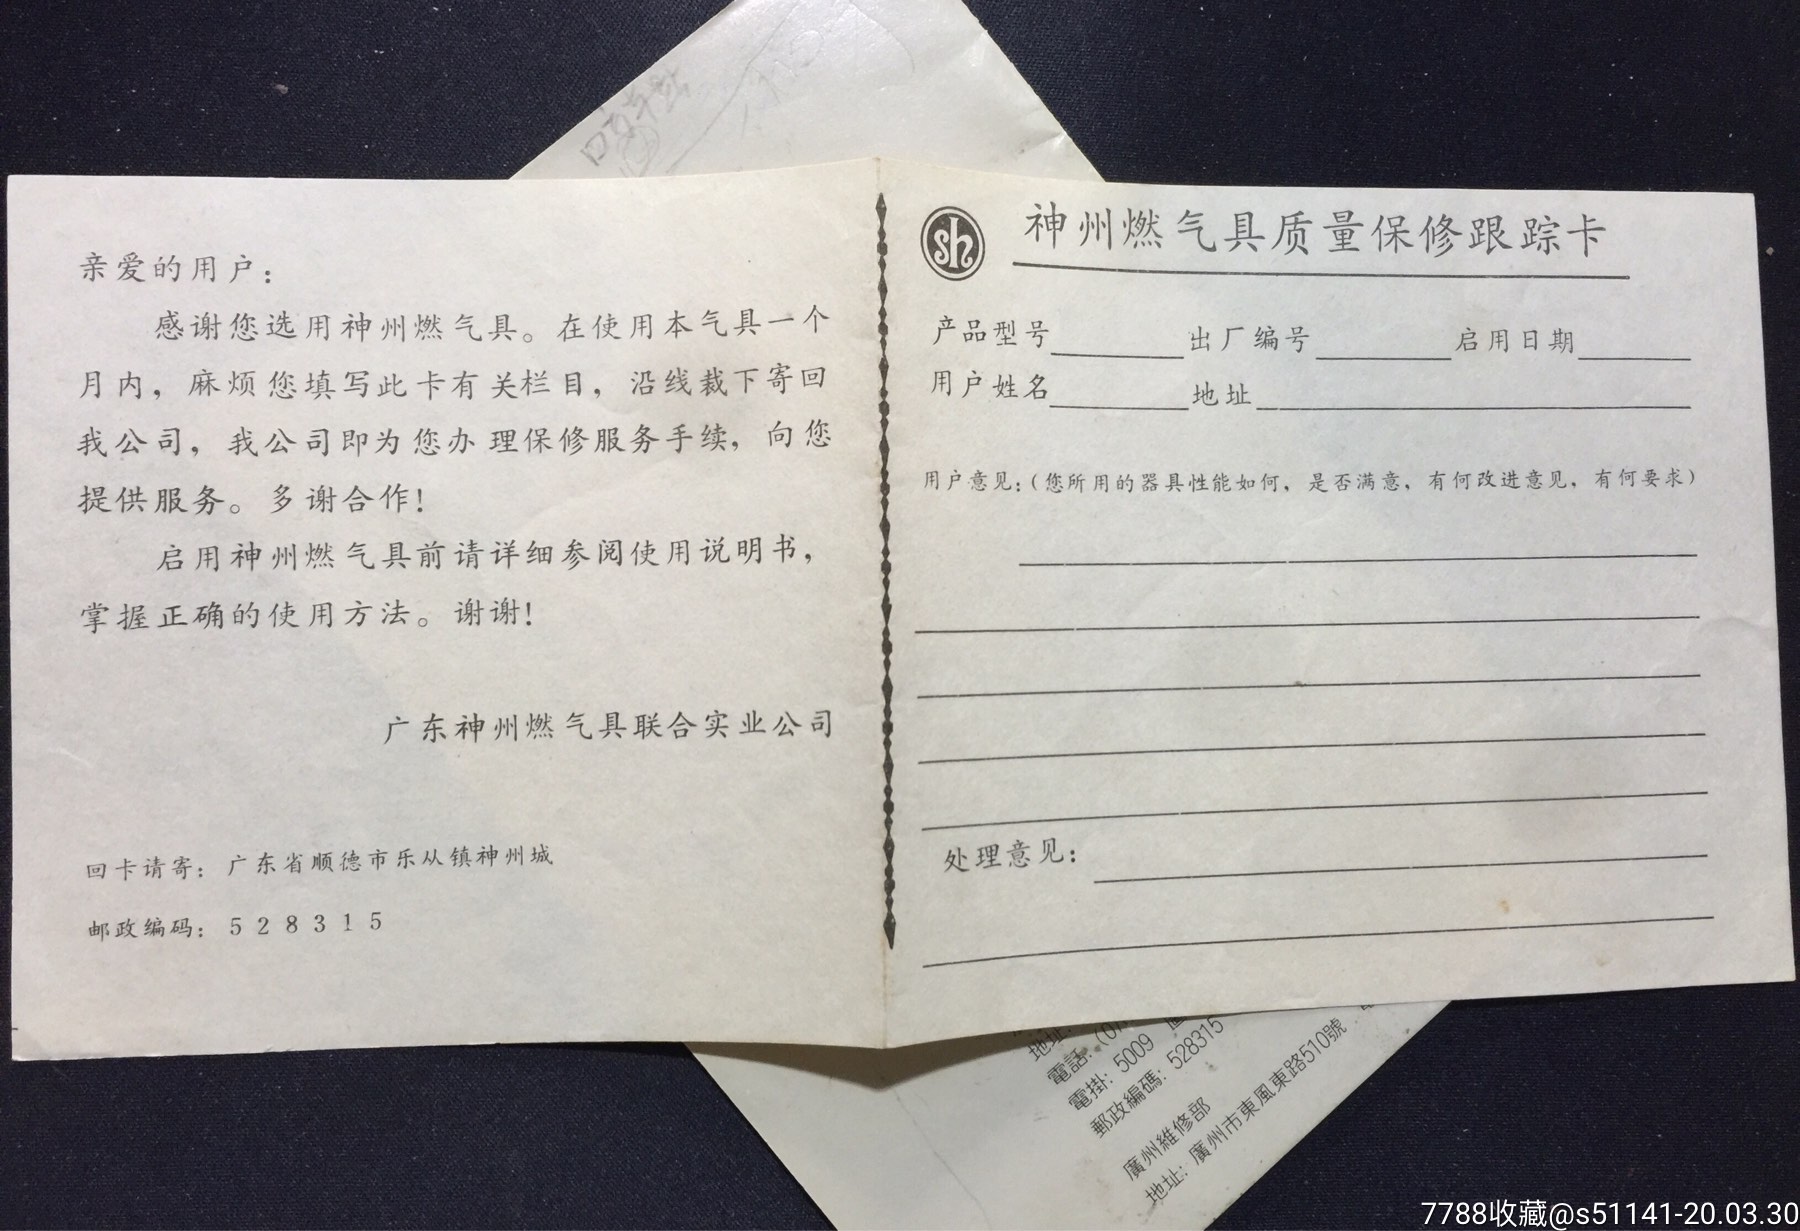 亲爱的用户：
感谢您选用神州燃气具。在使用本气具一个
月内，麻烦您填写此卡有关栏目，沿线裁下寄回
我公司，我公司即为您办理保修服务手续，向您
提供服务。多谢合作！
启用神州燃气具前请详细参阅使用说明书，
掌握正确的使用方法。谢谢！
广东神州燃气具联合实业公司
回卡请寄：广东省顺德市乐从镇神州城
邮政编码：528315
sh
神州燃气具质量保修跟踪卡
产品型号 出厂编号 启用日期
用户姓名 地址
用户意见：（您所用的器具性能如何，是否满意，有何改进意见，有何要求）
处理意见：
地址：
電話：（0
電掛：5009
郵政編碼：528315
廣州維修部
地址：廣州市東風東路510號
7788收藏@s51141-20.03.30